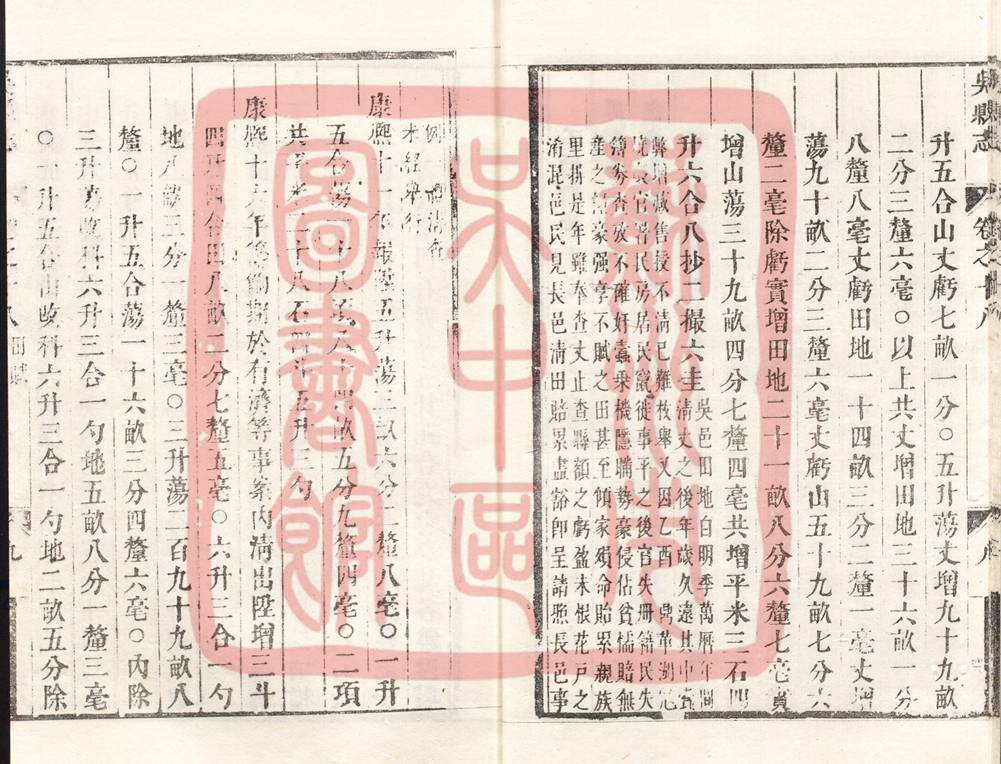 吳縣志 卷之十八
升五合山丈虧七畝一分○五升蕩丈增九十九畝
二分三釐六毫○以上共丈增田地三十六畝一分
八釐八毫丈虧田地一十四畝三分二釐一毫丈增
蕩九十畝二分三釐六毫丈虧山五十九畝七分六
釐二毫除虧實增田地二十一畝八分六釐七毫實
增山蕩三十九畝四分七釐四毫共增平米三石四
升六合八抄二撮六圭
吳邑田地自明季萬曆年間
清丈之後年歲久遠其中
弊增減售授不清已難枚舉又因乙酉鼎革湖
民房居民竄徙事平之後官失冊籍民失
簿券查攷不確奸蠹乗機隱瞞勢豪侵佔貧懦賠無
産之豪强享不賦之田甚至傾家殞命貽累親族
里排是年雖奉查丈止查縣額之虧盈未根花戸之
淆混邑民見長邑清田賠累盡豁即呈請照長邑事
例清查
未經舉行
康熙十一年報陞五升蕩二畝六分二釐八毫○一升
五合蕩一十八畝五分九釐四毫○二項
共二十八石四五升三勺
康熙十六年等勷期於有濟等事案内淸出陞增三斗
四升四合田八畝二分七釐五毫○六升三合一勺
地八畝三分一釐三毫○三升蕩二百九十九畝八
釐○一升五合蕩一十六畝三分四釐六毫○內除
三升蕩改科六升三合一勺地五畝八分一釐三毫
○一升五合山改科六升三合一勺地二畝五分除
田賦
九
蘇州吳中區圖書館